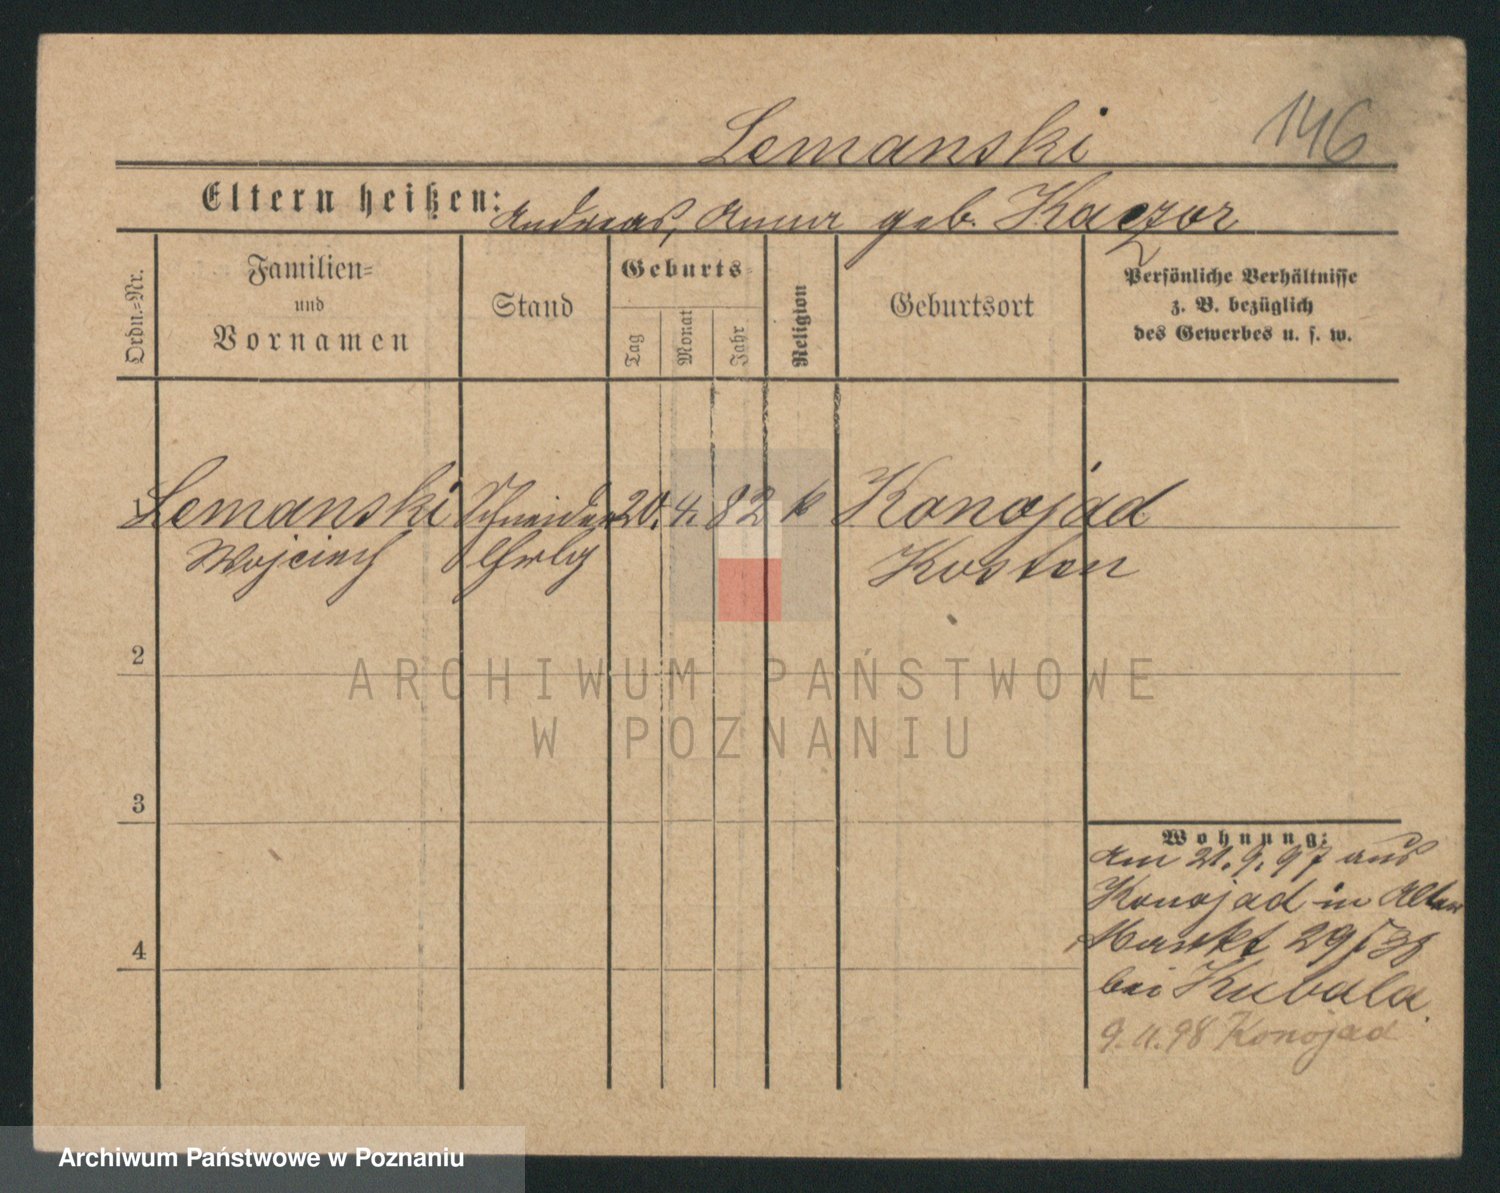 Lemanski
146
Eltern heißen: Andreas, Anna geb. Kaczor
Ordn.=Nr.
Familien=
und
Vornamen
Stand
Geburts=
Tag
Monat
Jahr
Religion
Geburtsort
Persönliche Verhältnisse
z. B. bezüglich
des Gewerbes u. s. w.
1 Lemanski Schneider 20. 4. 82 k Konojad
Wojciech Kosten
2
3
4
Wohnung:
Am 21. 9. 97 aus
Konojad in Alter
Markt 29
bei Kubala.
9. 11. 98 Konojad
ARCHIWUM PAŃSTWOWE
W POZNANIU
Archiwum Państwowe w Poznaniu